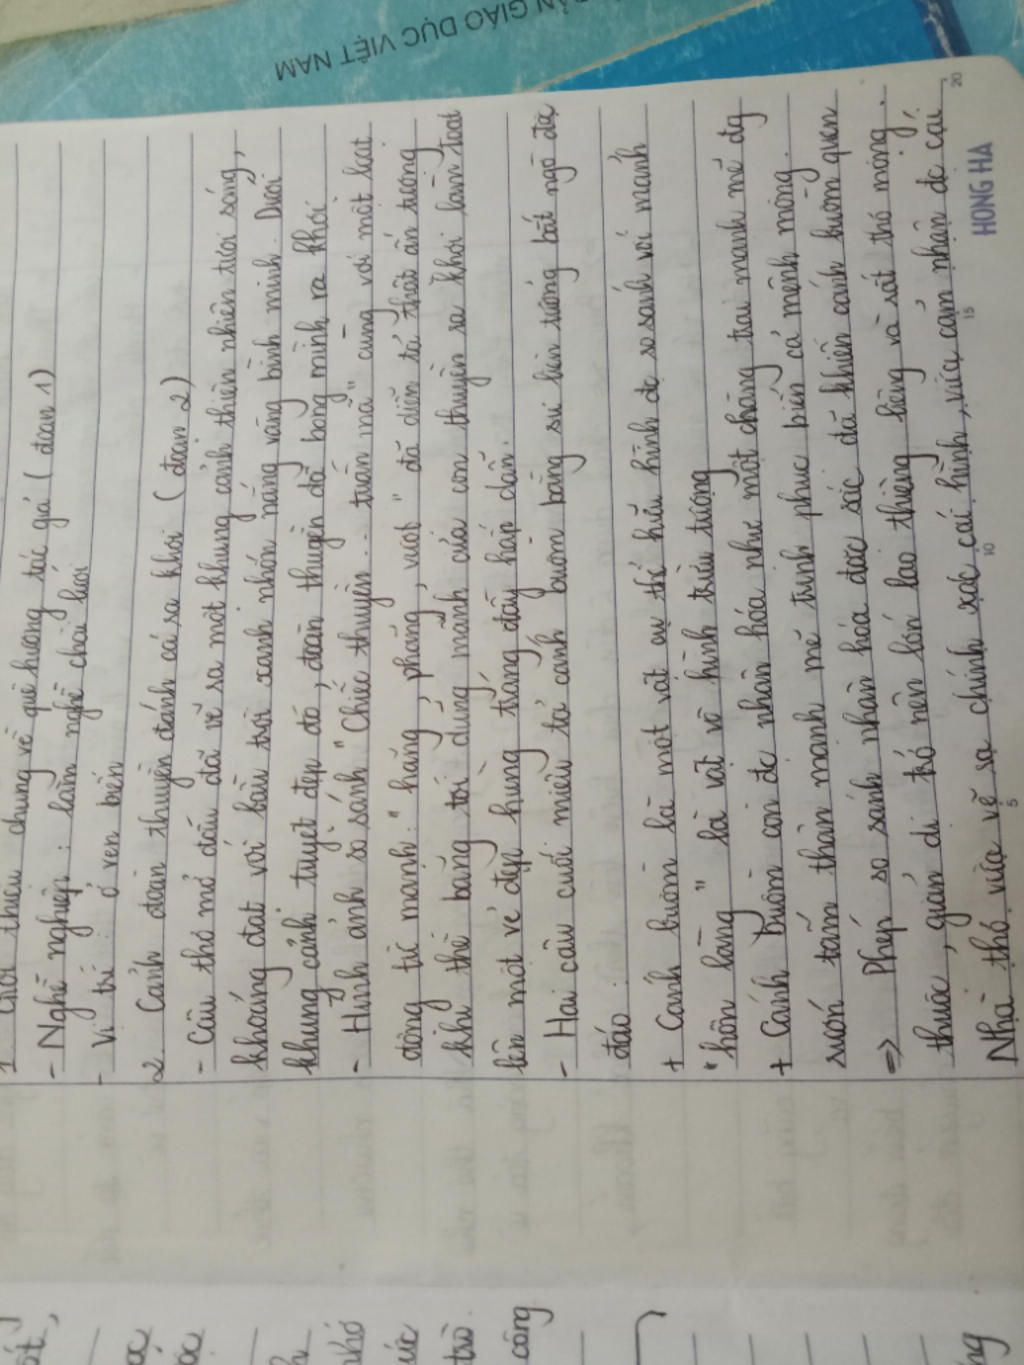 GIÁO DỤC VIỆT NAM
1 Giới thiệu chung về quê hương tác giả ( đoạn 1 )
- Nghề nghiệp : làm nghề chài lưới
- Vị trí : ở ven biển
2 Cảnh đoàn thuyền đánh cá ra khơi ( đoạn 2 )
- Câu thơ mở đầu đã vẽ ra một khung cảnh thiên nhiên tươi sáng,
khoáng đạt với bầu trời xanh nhóm nắng vàng bình minh. Dưới
khung cảnh tuyệt đẹp đó, đoàn thuyền đã bong mình ra khơi
- Hình ảnh so sánh " Chiếc thuyền... tuấn mã" cùng với một loạt
động từ mạnh: " hăng, phăng, vượt " đã diễn tả thật ấn tượng
khí thế băng tới dũng mãnh của con thuyền ra khơi làm toát
lên một vẻ đẹp hùng tráng đầy hấp dẫn.
- Hai câu cuối miêu tả cánh buồm bằng sự liên tưởng bất ngờ độc
đáo :
+ Cánh buồm là một vật cụ thể hữu hình đc so sánh với mảnh
" hồn làng " là vật vô hình trừu tượng
+ Cánh buồm còn đc nhân hóa như một chàng trai mạnh mẽ đg
rướn tấm thân mạnh mẽ trinh phục biển cả mênh mông.
=> Phép so sánh nhân hóa đặc sắc đã khiến cánh buồm quen
thuộc, giản dị trở nên lớn lao thiêng liêng và rất thơ mộng.
Nhà thơ vừa vẽ ra chính xác cái hình, vừa cảm nhận đc cái
5 10 15 20
HONG HA
ốt,
ộc
ọc
h
nhớ
ức
trò.
công
ng